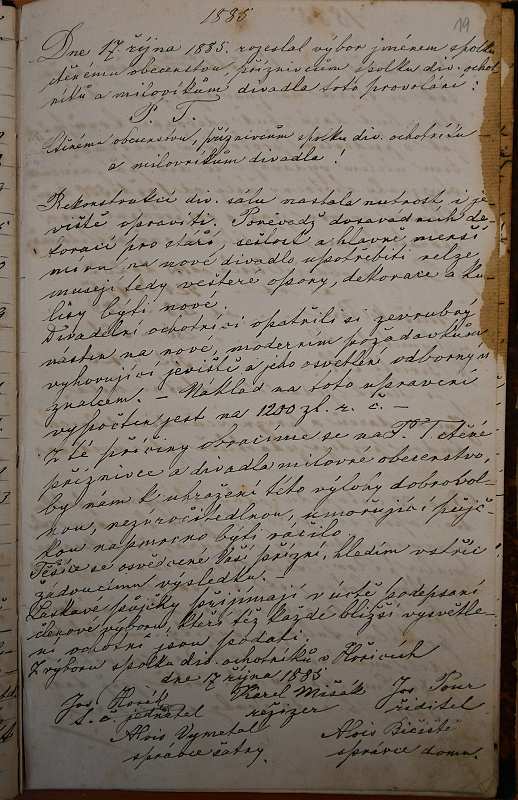 1885
19
Dne 17. října 1885. rozeslal výbor jménem spolku
ctěnému obecenstvu, příznivcům spolku div. ochot-
níků a milovníkům divadla toto provolání:
P. T.
Ctěnému obecenstvu, příznivcům spolku div. ochotníků
a milovníkům divadla!
Rekonstrukcí div. sálu nastala nutnost, i je-
viště opraviti. Poněvadž dosavadních de-
korací pro stáří, sešlost a hlavně menší
míru na nové divadlo upotřebiti nelze
musejí tedy veškeré opony, dekorace a ku-
lisy býti nové.
Divadelní ochotníci opatřili si zevrubný
nástin na nové, moderním požadavkům
vyhovující jeviště a jeho osvětlení odborným
znalcem. – Náklad na toto upravení
vypočten jest na 1200 zl. r. č. –
Z té příčiny obracíme se na P. T. ctěné
příznivce a divadla milovné obecenstvo,
by nám k uhražení této výlohy dobrovol-
nou, nezúročitedlnou, umořující půjč-
kou nápomocno býti ráčilo.
Těšíce se osvědčené Vaší přízni, hledím vstříc
žádoucímu výsledku. –
Laskavé půjčky přijímají v úctě podepsaní
členové výboru, kteří též každé bližší vysvětle-
ní ochotni jsou podati.
Z výboru spolku div. ochotníků v Hořicích
dne 17 října 1885
Jos. Horák Karel Mišák Jos Pour
t. č. jednatel režizer ředitel
Alois Vymetal Alois Bičiště
správce šatny. správce domu.